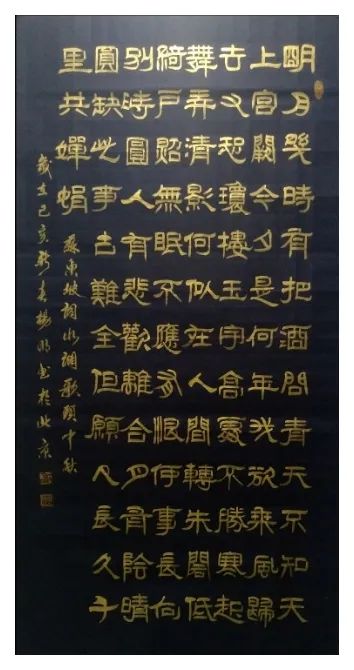 明月幾時有把酒問青天不知天
上宮闕今夕是何年我欲乘風歸
去又恐瓊樓玉宇高處不勝寒起
舞弄清影何似在人間轉朱閣低
綺戶照無眠不應有恨何事長向
別時圓人有悲歡離合月有陰晴
圓缺此事古難全但願人長久千
里共嬋娟
蘇東坡詞水調歌頭中秋
歲在己亥新春楊明書於北京